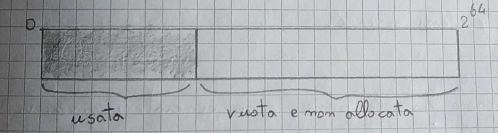 0 2^64
usata vuota e non allocata